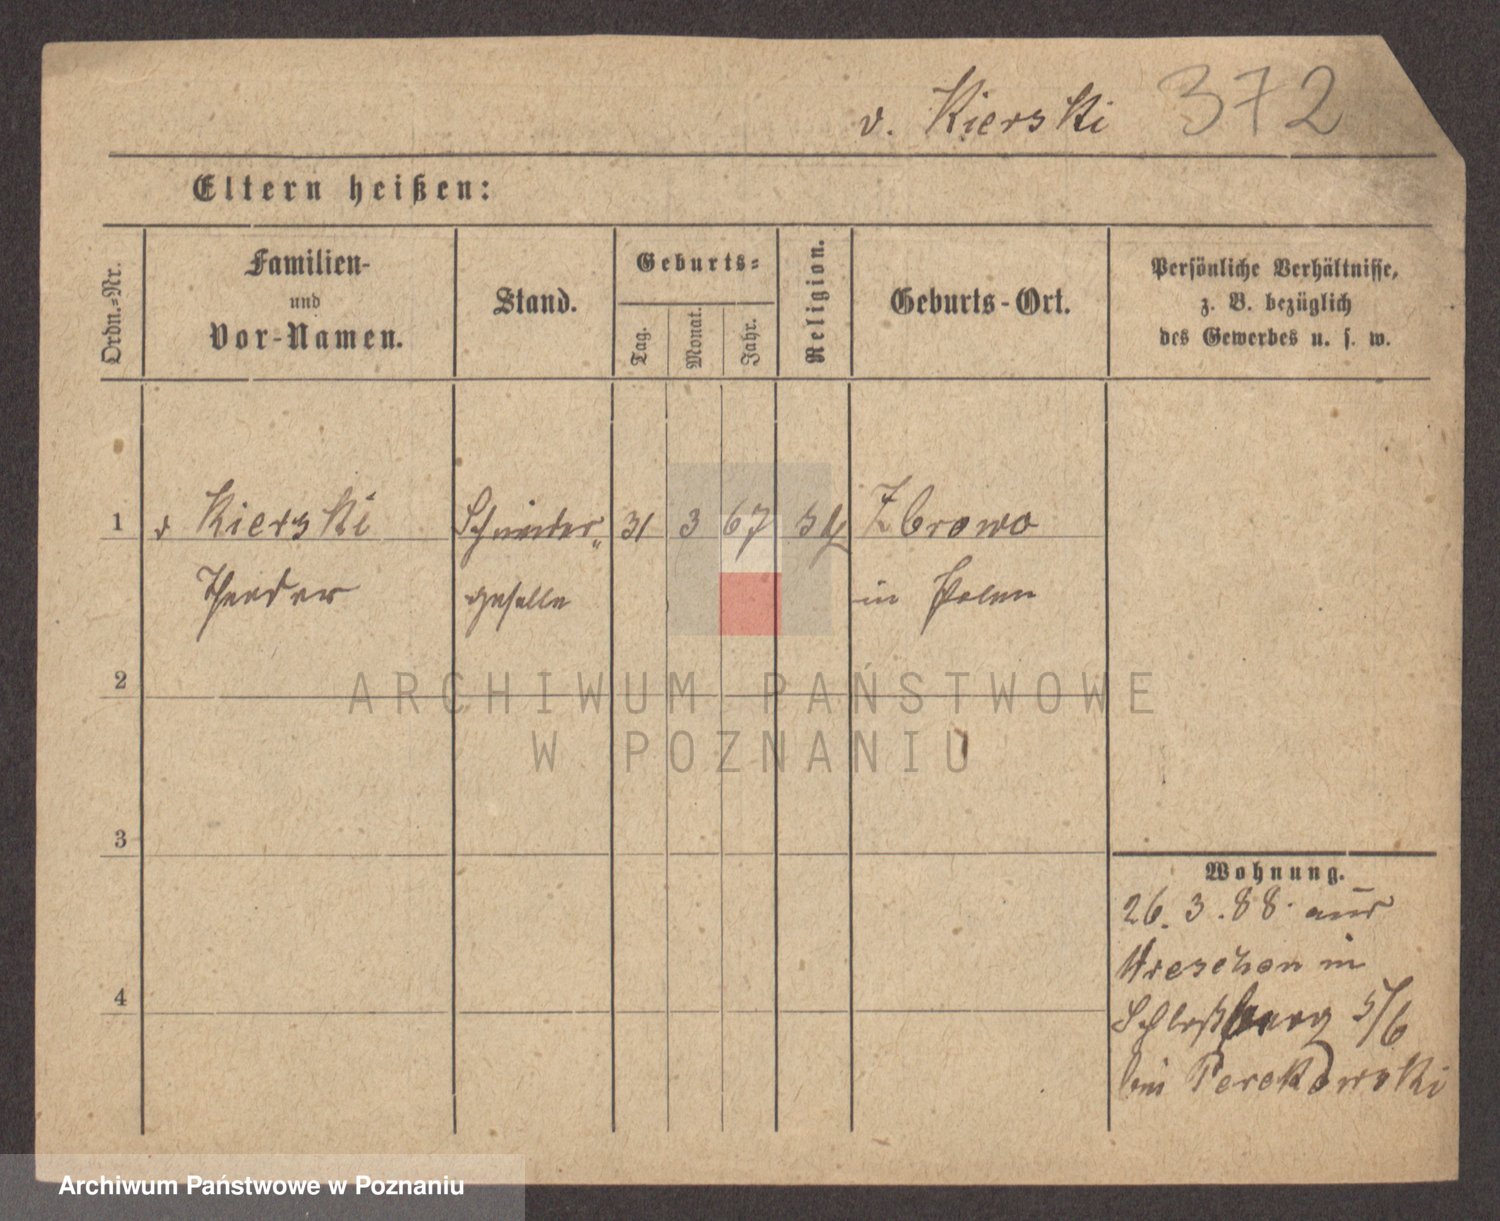 v. Kierski 372
Eltern heißen:
Ordn.-Nr.
Familien-
und
Vor-Namen.
Stand.
Geburts-
Tag.
Monat.
Jahr.
Religion.
Geburts-Ort.
Persönliche Verhältnisse,
z. B. bezüglich
des Gewerbes u. s. w.
1 v Kierski Schneider 31 3 67 Zbrowo
Theodor geselle in Polen
2
ARCHIWUM PAŃSTWOWE
W POZNANIU
3
4
Wohnung.
26. 3. 88. aus
Wreschen in
Schloßberg 5/6
bei Perekowski
Archiwum Państwowe w Poznaniu